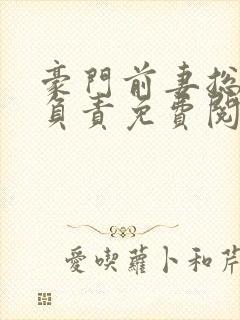 豪門前妻總
負責免費閱
愛喫蘿卜和芹